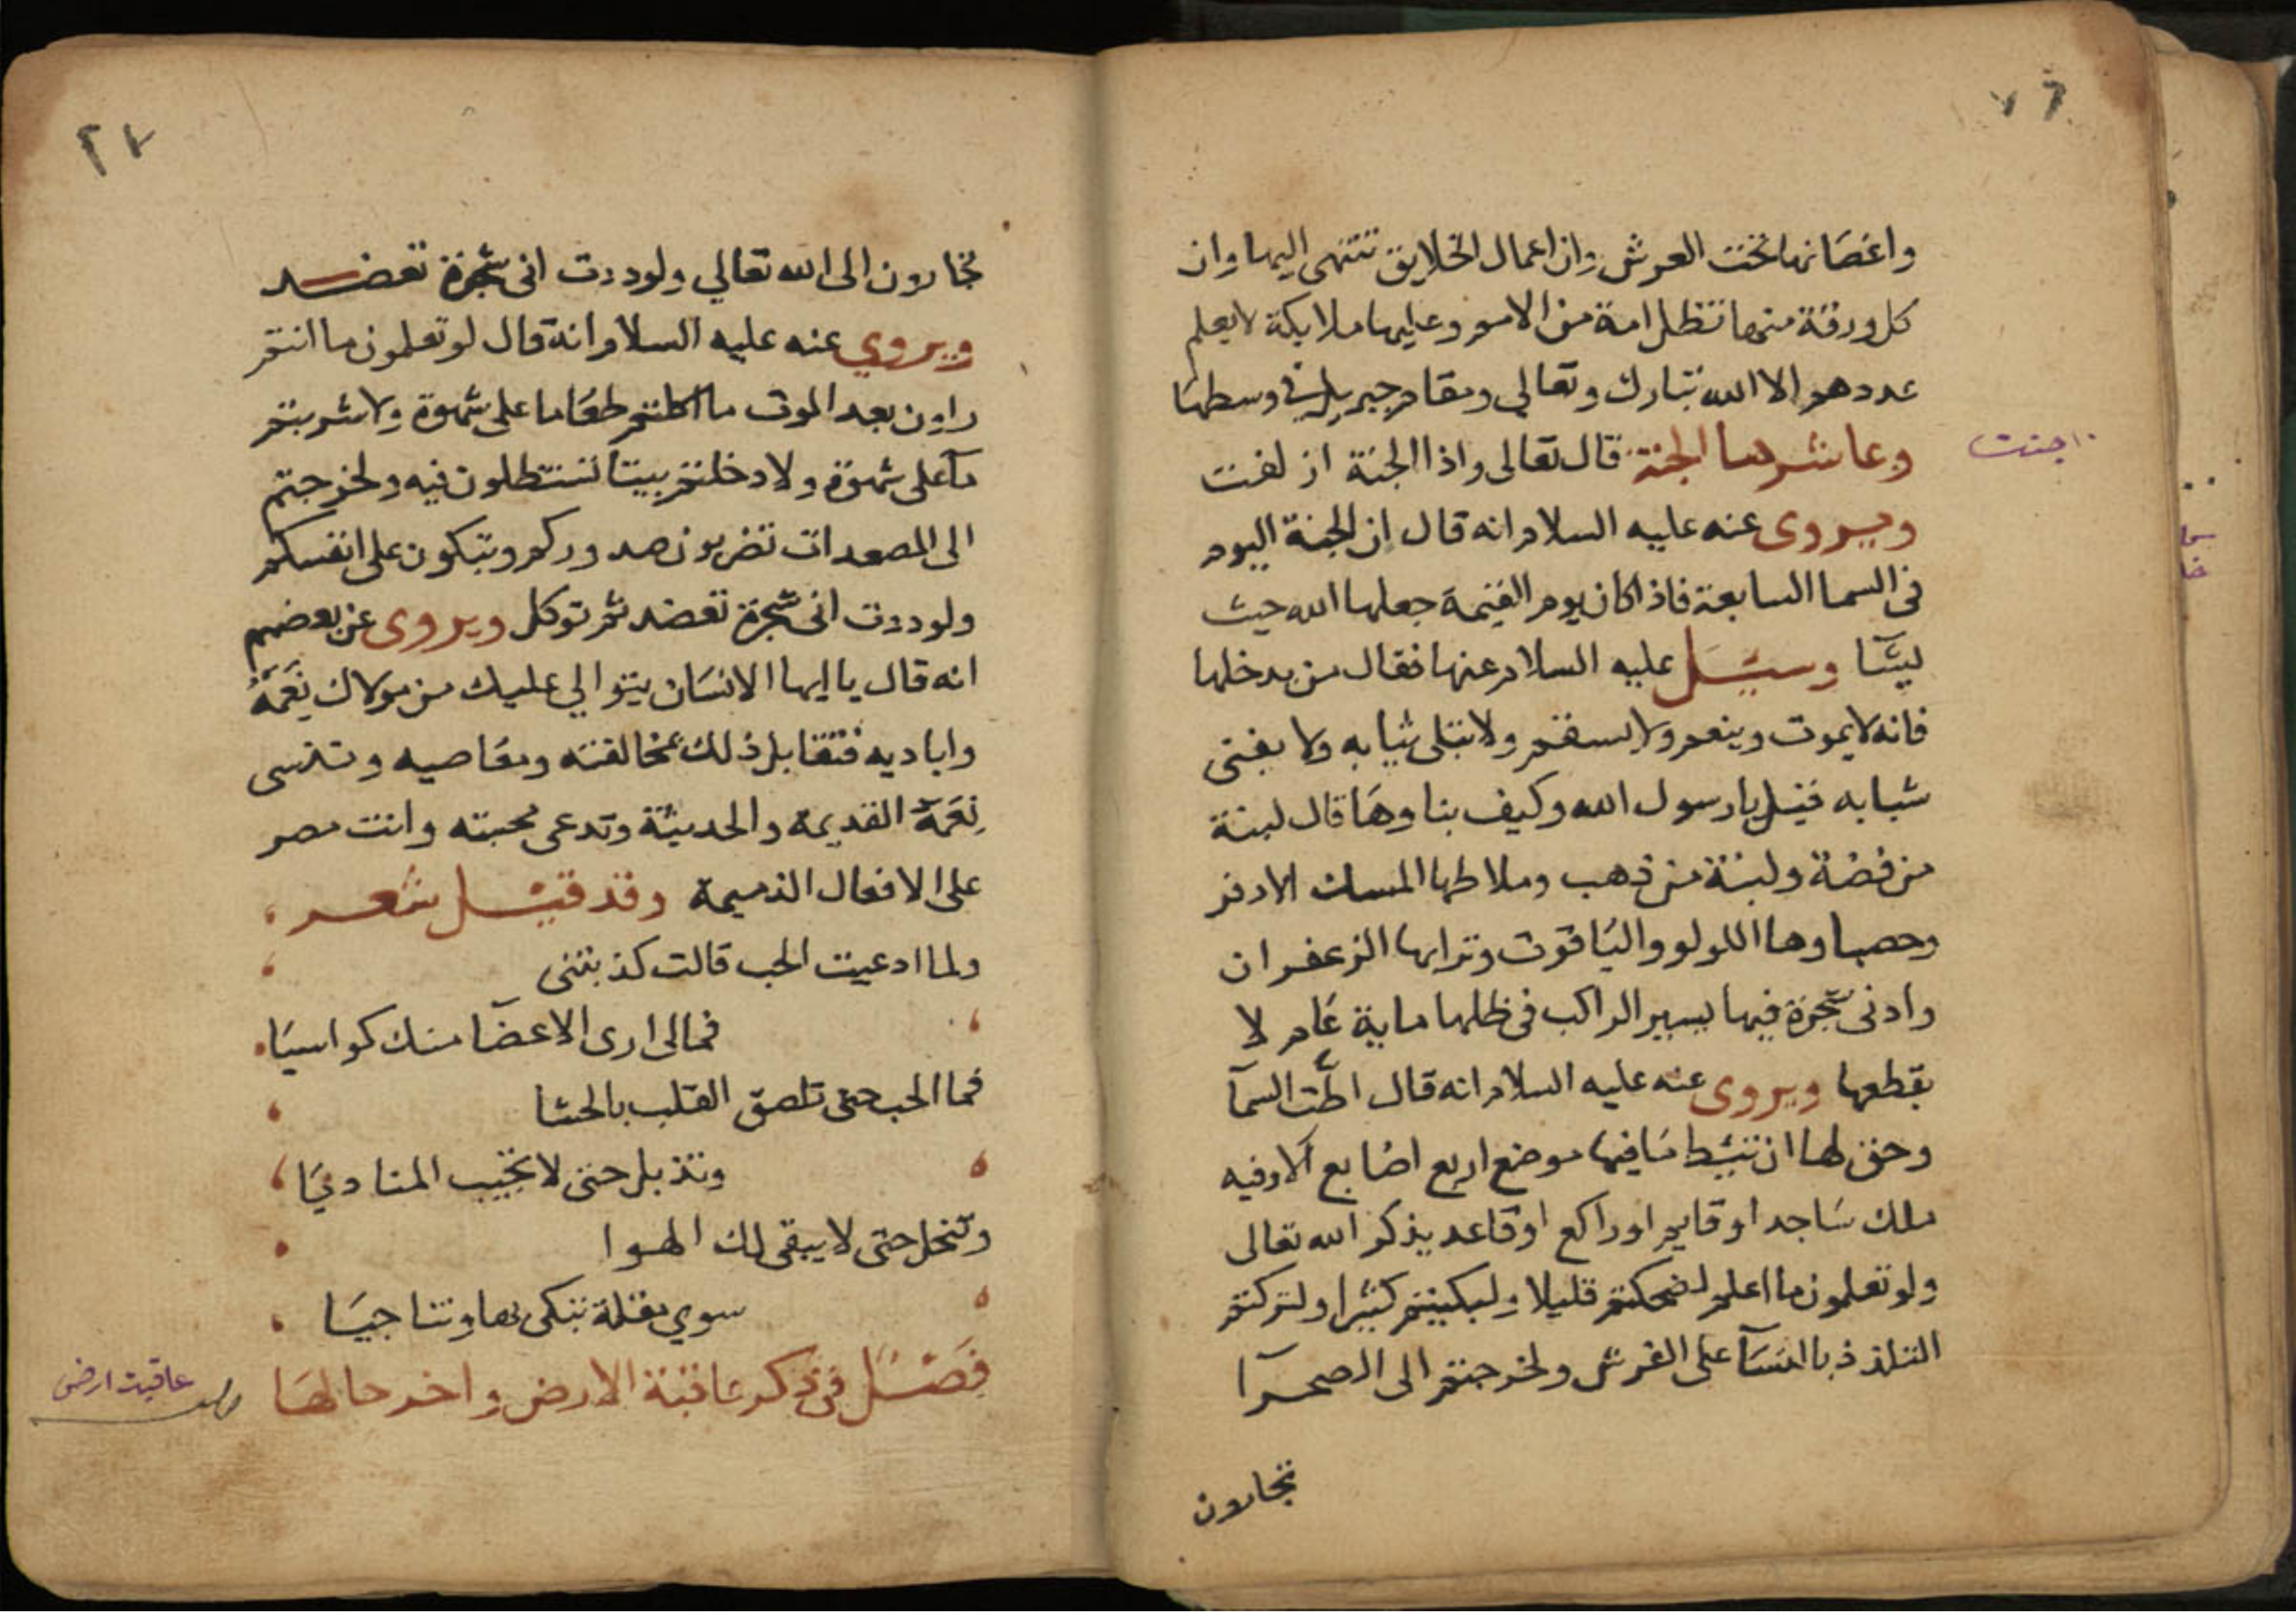 واغصانها تحت العرش وان اعمال الخلايق تنتهى اليها وان
كل ورقة منها تظل امة من الامم وعليها ملايكة لا يعلم
عددهم الا الله تبارك وتعالي ومقام جبريل في وسطها
وعاشرها الجنة قال تعالى واذا الجنة ازلفت
١٠ جنت
ويروى عنه عليه السلام انه قال ان الجنة اليوم
في السما السابعة فاذا كان يوم القيمة جعلها الله حيث
يشآ وسئل عليه السلام عنها فقال من يدخلها
فانه لا يموت وينعم ولا يسقم ولا تبلى ثيابه ولا يفنى
شبابه قيل يا رسول الله وكيف بناوها قال لبنة
من فضة ولبنة من ذهب وملاطها المسك الادفر
وحصباوها اللولو والياقوت وترابها الزعفران
وادنى شجرة فيها يسير الراكب في ظلها ماية عام لا
يقطعها ويروى عنه عليه السلام انه قال اطّت السمآ
وحق لها ان تئط ما فيها موضع اربع اصابع الا وفيه
ملك ساجد او قايم او راكع او قاعد يذكر الله تعالى
ولو تعلمون ما اعلم لضحكتم قليلا ولبكيتم كثيرا ولتركتم
التلذذ بالنسآ على الفرش ولخرجتم الى الصحرآ
تجارون
٢٧
تجارون الى الله تعالي ولوددت انى شجرة تعضد
ويروي عنه عليه السلام انه قال لو تعلمون ما انتم
راون بعد الموت ما اكلتم طعاما على شهوة ولا شربتم
مآ على شهوة ولا دخلتم بيتا تستظلون فيه ولخرجتم
الى المصعدات تضربون صدوركم وتبكون على انفسكم
ولوددت انى شجرة تعضد ثم توكل ويروى عن بعضهم
انه قال يا ايها الانسان يتوالي عليك من مولاك نِعَمَهُ
واياديه فتقابل ذلك بمخالفته ومعاصيه وتنسى
نِعَمَهُ القديمة والحديثة وتدعى محبته وانت مصر
على الافعال الذميمة وقد قيل شعر
ولما ادعيت الحب قالت كذبتنى
فمالى ارى الاعضآ منك كواسيَا
فما الحب حتى تلصق القلب بالحشا
وتذبل حتى لا تجيب المناديَا
وتنحل حتى لا يبقى لك الهوا
سوي مقلة تبكى بها وتناجيَا
فصل في ذكر عاقبة الارض واخر حالها
عاقبت ارض